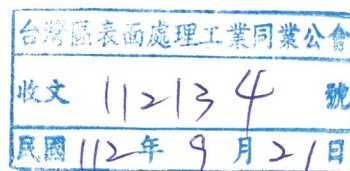 台灣區表面處理工業同業公會
收文 112134 號
民國 112 年 9 月 21 日